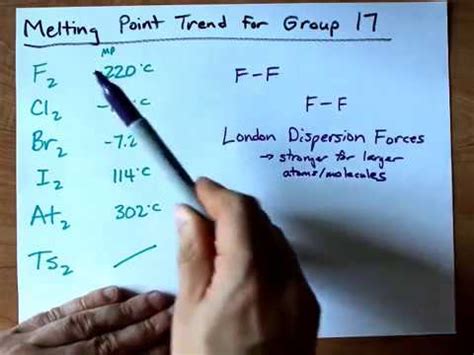 Melting Point Trend for Group 17
MP
F2 -220°C
Cl2
Br2 -7.2
I2 114°C
At2 302°C
Ts2
F-F
F-F
London Dispersion Forces
→ stronger for larger
atoms/molecules